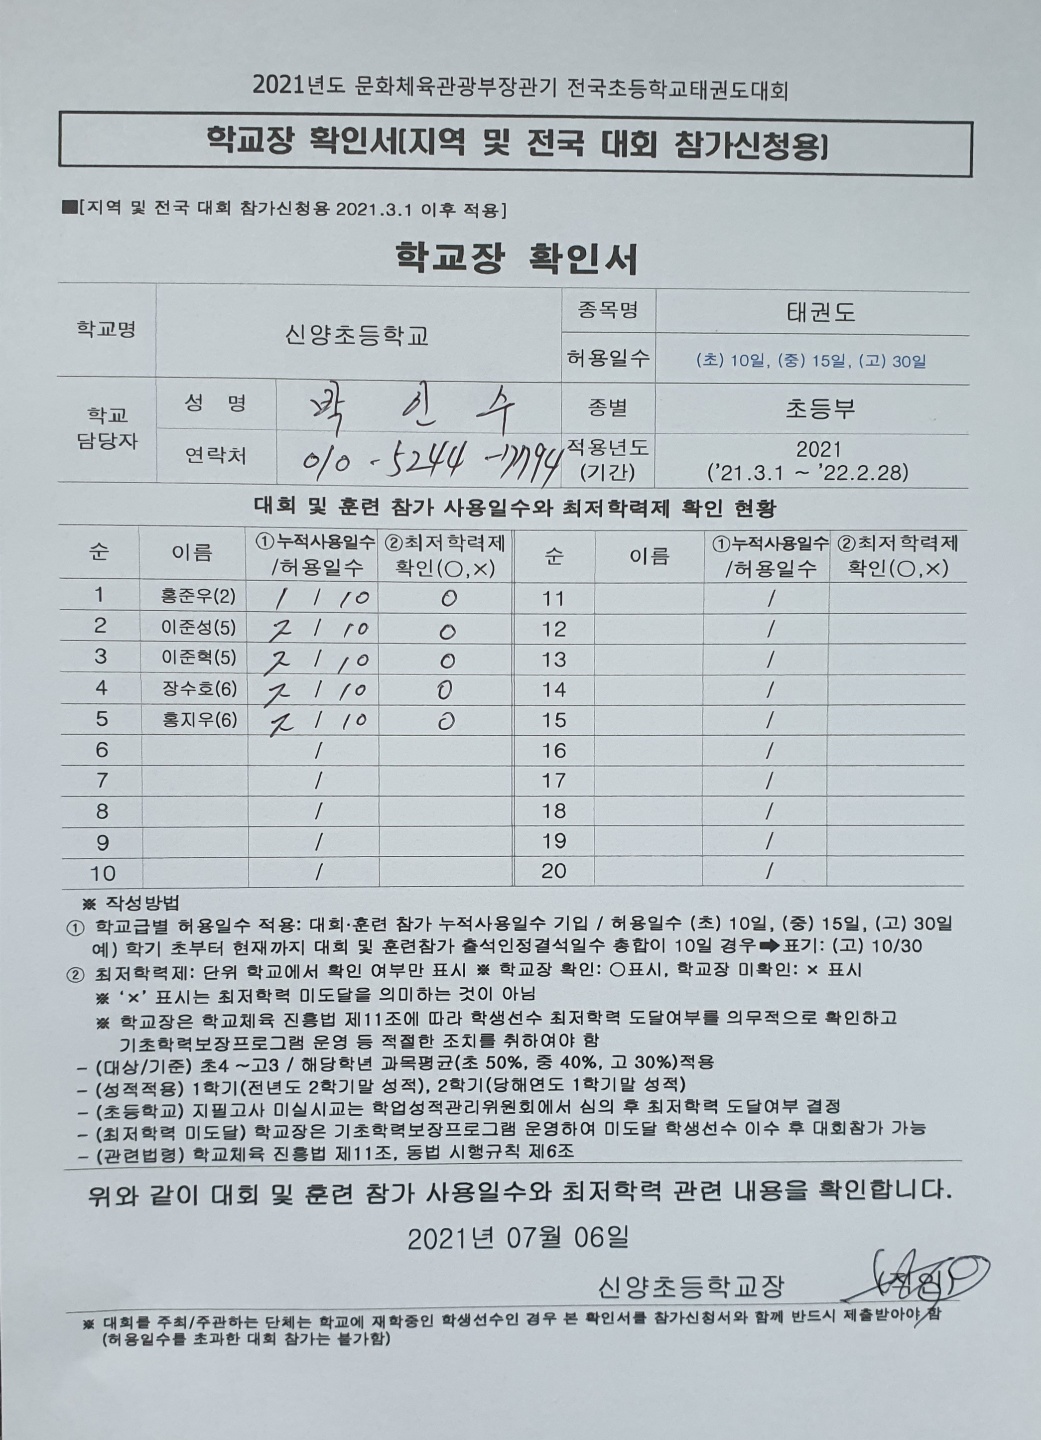 2021년도 문화체육관광부장관기 전국초등학교태권도대회
학교장 확인서(지역 및 전국 대회 참가신청용)
■[지역 및 전국 대회 참가신청용 2021.3.1 이후 적용]
학교장 확인서
학교명 신양초등학교 종목명 태권도
허용일수 (초) 10일, (중) 15일, (고) 30일
학교 담당자 성 명 박 인 수 종별 초등부
연락처 010-5244-7794 적용년도 (기간) 2021 ('21.3.1 ~ '22.2.28)
대회 및 훈련 참가 사용일수와 최저학력제 확인 현황
순 이름 ①누적사용일수 /허용일수 ②최저학력제 확인(○,×) 순 이름 ①누적사용일수 /허용일수 ②최저학력제 확인(○,×)
1 홍준우(2) 1 / 10 ○ 11 /
2 이준성(5) 2 / 10 ○ 12 /
3 이준혁(5) 2 / 10 ○ 13 /
4 장수호(6) 2 / 10 ○ 14 /
5 홍지우(6) 2 / 10 ○ 15 /
6 / 16 /
7 / 17 /
8 / 18 /
9 / 19 /
10 / 20 /
※ 작성방법
① 학교급별 허용일수 적용: 대회·훈련 참가 누적사용일수 기입 / 허용일수 (초) 10일, (중) 15일, (고) 30일
예) 학기 초부터 현재까지 대회 및 훈련참가 출석인정결석일수 총합이 10일 경우➡표기: (고) 10/30
② 최저학력제: 단위 학교에서 확인 여부만 표시 ※ 학교장 확인: ○표시, 학교장 미확인: × 표시
※ '×' 표시는 최저학력 미도달을 의미하는 것이 아님
※ 학교장은 학교체육 진흥법 제11조에 따라 학생선수 최저학력 도달여부를 의무적으로 확인하고
기초학력보장프로그램 운영 등 적절한 조치를 취하여야 함
- (대상/기준) 초4 ~고3 / 해당학년 과목평균(초 50%, 중 40%, 고 30%)적용
- (성적적용) 1학기(전년도 2학기말 성적), 2학기(당해연도 1학기말 성적)
- (초등학교) 지필고사 미실시교는 학업성적관리위원회에서 심의 후 최저학력 도달여부 결정
- (최저학력 미도달) 학교장은 기초학력보장프로그램 운영하여 미도달 학생선수 이수 후 대회참가 가능
- (관련법령) 학교체육 진흥법 제11조, 동법 시행규칙 제6조
위와 같이 대회 및 훈련 참가 사용일수와 최저학력 관련 내용을 확인합니다.
2021년 07월 06일
신양초등학교장 (직인)
※ 대회를 주최/주관하는 단체는 학교에 재학중인 학생선수인 경우 본 확인서를 참가신청서와 함께 반드시 제출받아야 함
(허용일수를 초과한 대회 참가는 불가함)